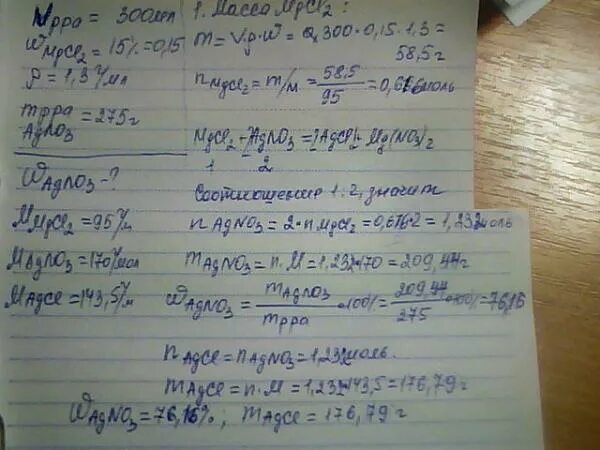 Vрра = 300мл
WMgCl2 = 15% = 0,15
ρ = 1,3 г/мл
mрра = 275г
AgNO3
WAgNO3 - ?
MMgCl2 = 95 г/м
MAgNO3 = 170 г/мол
MAgCl = 143,5 г/м
1. Масса MgCl2:
m = V·ρ·w = 300·0,15·1,3 =
58,5г
nMgCl2 = m/M = 58,5/95 = 0,616моль
MgCl2 + 2AgNO3 = 2AgCl + Mg(NO3)2
1 2
Соотношение 1:2, значит
nAgNO3 = 2·nMgCl2 = 0,616·2 = 1,232моль
mAgNO3 = n·M = 1,232·170 = 209,44г
WAgNO3 = mAgNO3/mрра ·100% = 209,44/275 ·100% = 76,16
nAgCl = nAgNO3 = 1,232моль.
mAgCl = n·M = 1,232·143,5 = 176,79г
WAgNO3 = 76,16% ; mAgCl = 176,79г